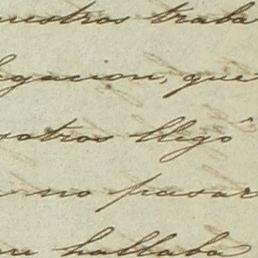 nuestros traba
egacion, que
sotros llegó
no pasar
hallaba